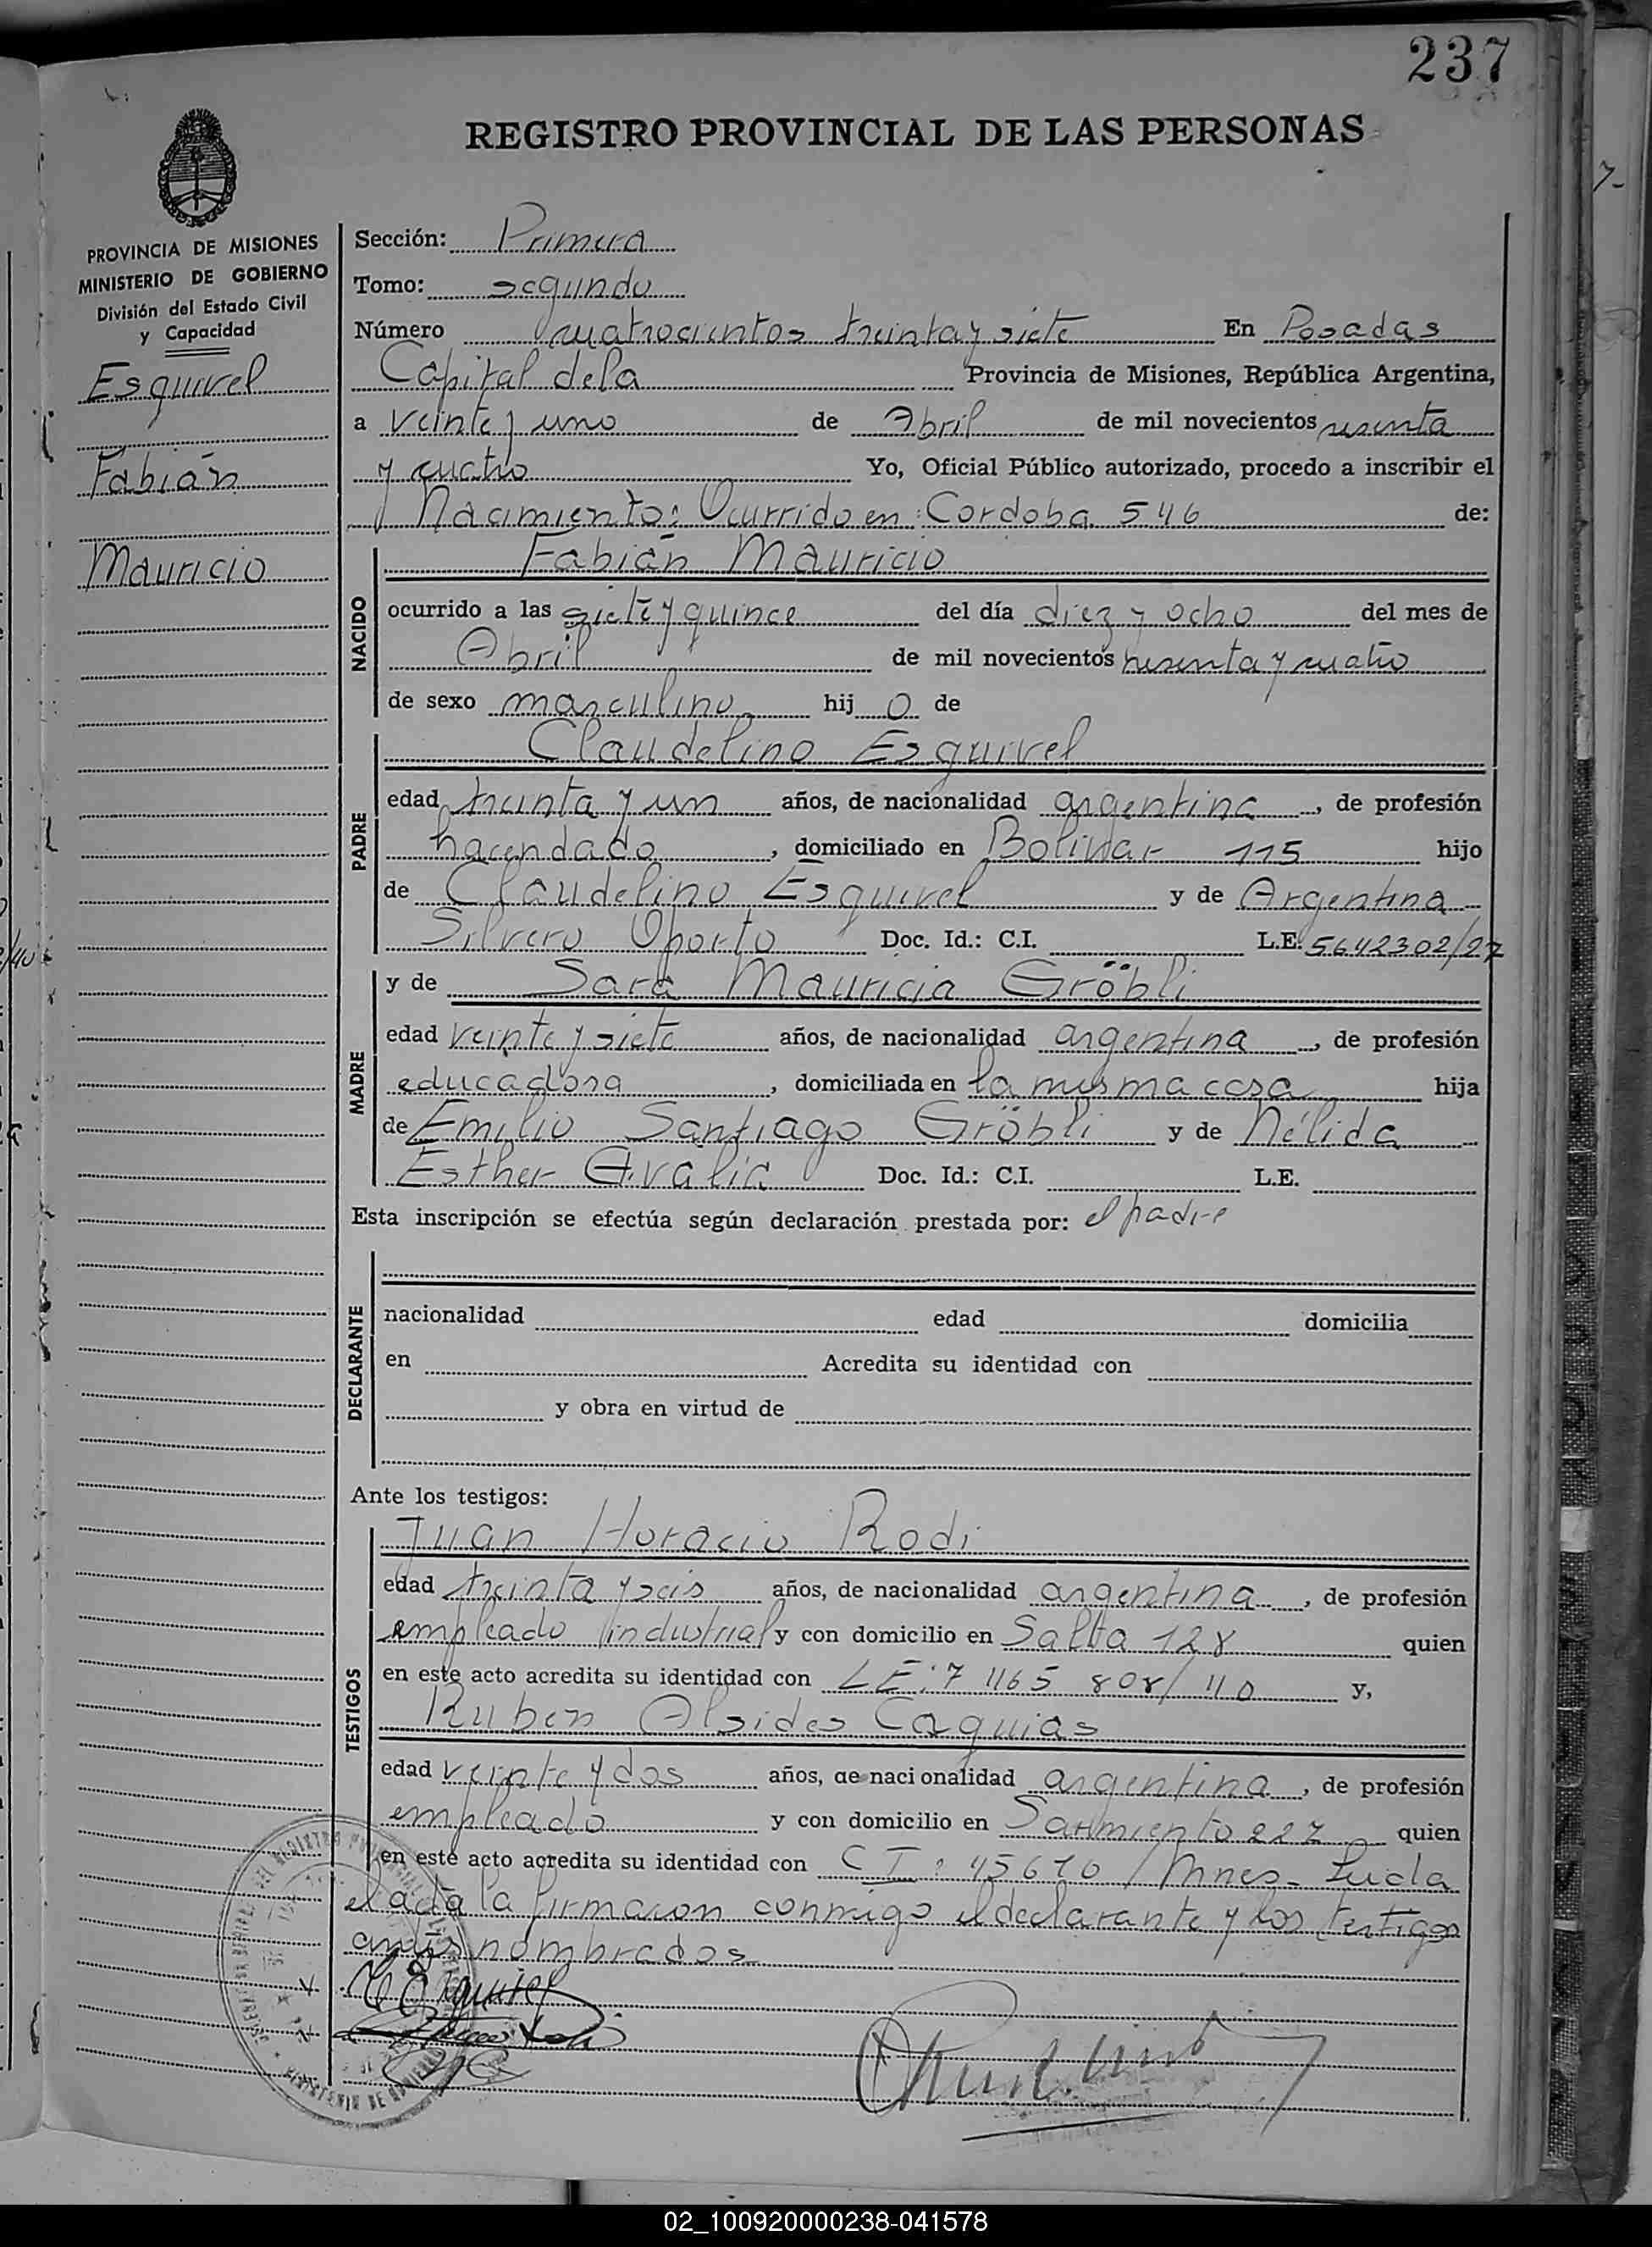 237
REGISTRO PROVINCIAL DE LAS PERSONAS
PROVINCIA DE MISIONES
MINISTERIO DE GOBIERNO
División del Estado Civil
y Capacidad
Esquivel
Fabián
Mauricio
Sección: Primera
Tomo: segundo
Número cuatrocientos treinta y siete En Posadas
Capital de la Provincia de Misiones, República Argentina,
a veinte y uno de Abril de mil novecientos sesenta
y cuatro Yo, Oficial Público autorizado, procedo a inscribir el
Nacimiento: Ocurrido en: Cordoba 546 de:
NACIDO
Fabián Mauricio
ocurrido a las siete y quince del día diez y ocho del mes de
Abril de mil novecientos sesenta y cuatro
de sexo masculino hij o de
PADRE
Claudelino Esquivel
edad treinta y un años, de nacionalidad argentina, de profesión
hacendado, domiciliado en Bolivar 115 hijo
de Claudelino Esquivel y de Argentina
Silvero Oporto Doc. Id.: C.I. L.E. 5642302/27
MADRE
y de Sara Mauricia Gröbli
edad veinte y siete años, de nacionalidad argentina, de profesión
educadora, domiciliada en la misma casa hija
de Emilio Santiago Gröbli y de Nélida
Esther Avalia Doc. Id.: C.I. L.E.
Esta inscripción se efectúa según declaración prestada por: el padre
DECLARANTE
nacionalidad edad domicilia
en Acredita su identidad con
y obra en virtud de
Ante los testigos:
TESTIGOS
Juan Horacio Rodi
edad treinta y seis años, de nacionalidad argentina, de profesión
empleado industrial y con domicilio en Salta 128 quien
en este acto acredita su identidad con LE: 7 1165 808/110 y,
Ruben Alsides Caquias
edad veinte y dos años, de nacionalidad argentina, de profesión
empleado y con domicilio en Sarmiento 227 quien
en este acto acredita su identidad con CI: 45610 / Mnes. Leida
el acta la firmaron conmigo el declarante y los testigos
antes nombrados
C Esquivel
02_100920000238-041578